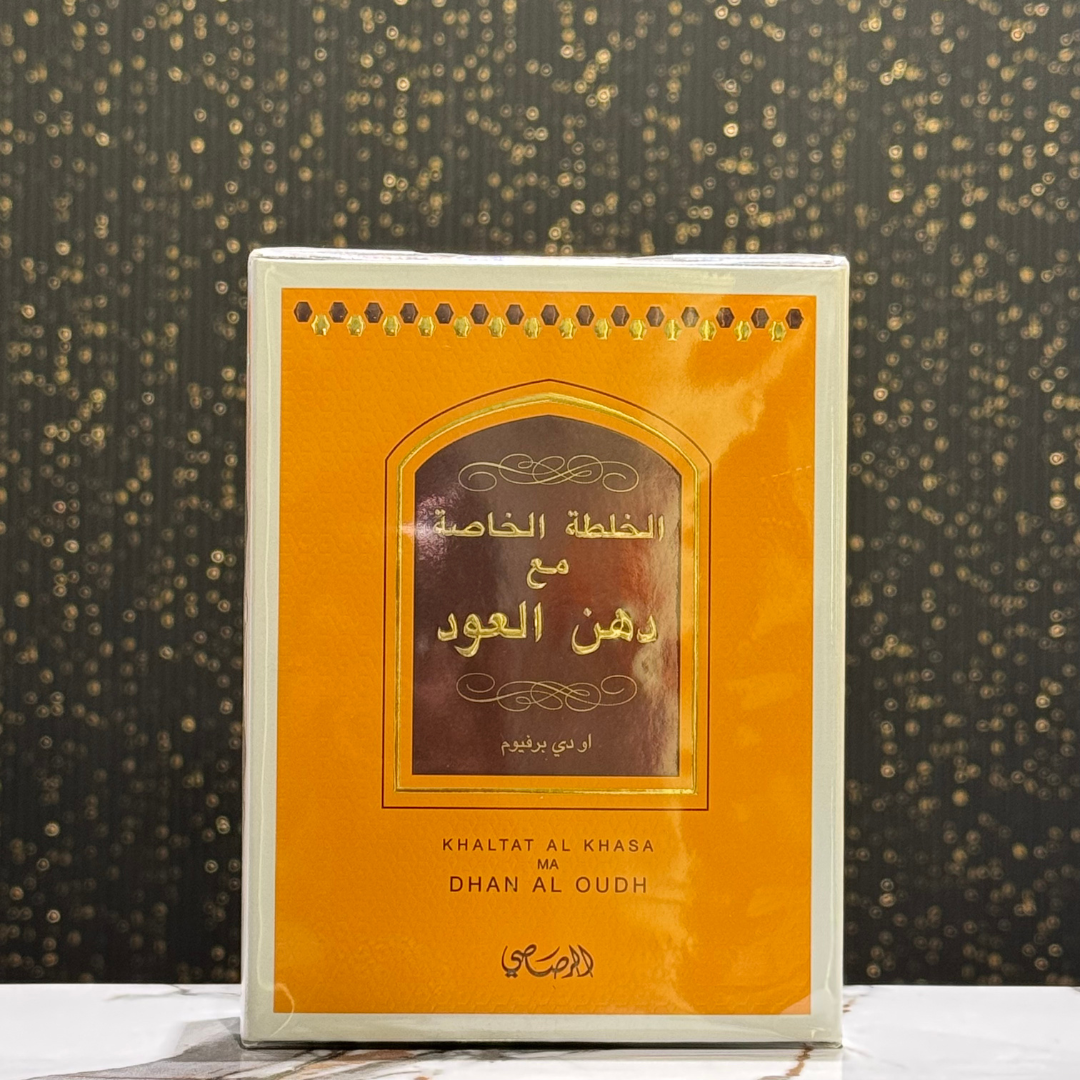 الخلطة الخاصة
مع
دهن العود
او دي برفيوم
KHALTAT AL KHASA
MA
DHAN AL OUDH
الرصاصي